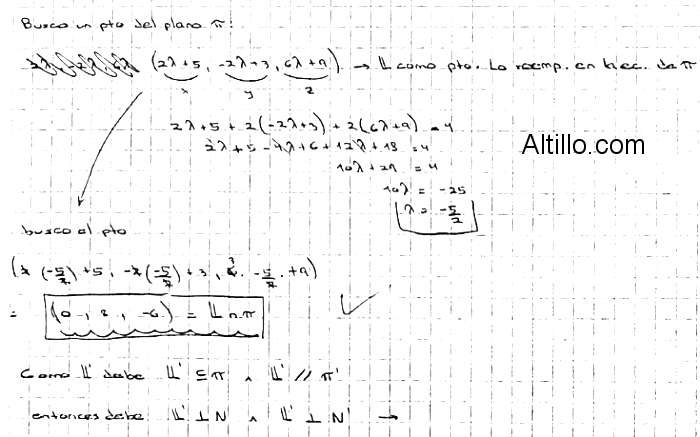 Busco un pto del plano π:
(2λ+5, -2λ+3, 6λ+9) → 𝕃 como pto. Lo reemp. en la ec. de π
x y z
2λ+5 + 2(-2λ+3) + 2(6λ+9) = 4
2λ+5-4λ+6+12λ+18 = 4
Altillo.com
10λ+29 = 4
10λ = -25
λ = -5/2
busco el pto
(2 (-5/2) +5, -2 (-5/2) +3, 6 3 . -5/2 . +9)
= (0, 8, -6) = 𝕃 ∩ π
Como 𝕃' debe 𝕃' ⊆ π ∧ 𝕃' // π'
entonces debe 𝕃' ⊥ N ∧ 𝕃' ⊥ N' →